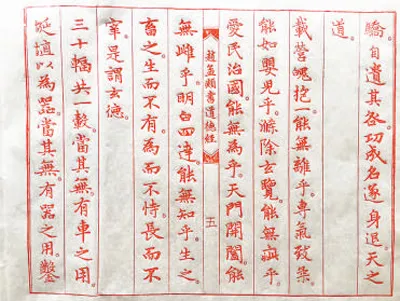 驕。自遺其咎。功成名遂身退。天之
道。
載營魄抱一。能無離乎。專氣致柔。
能如嬰兒乎。滌除玄覽。能無疵乎。
愛民治國。能無為乎。天門開闔。能
趙孟頫書道德經 五
無雌乎。明白四達。能無知乎。生之。
畜之。生而不有。為而不恃。長而不
宰。是謂玄德。
三十輻共一轂。當其無。有車之用。
埏埴以為器。當其無。有器之用。鑿